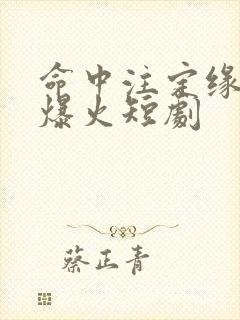 命中注定缘
爆火短劇
蔡正青